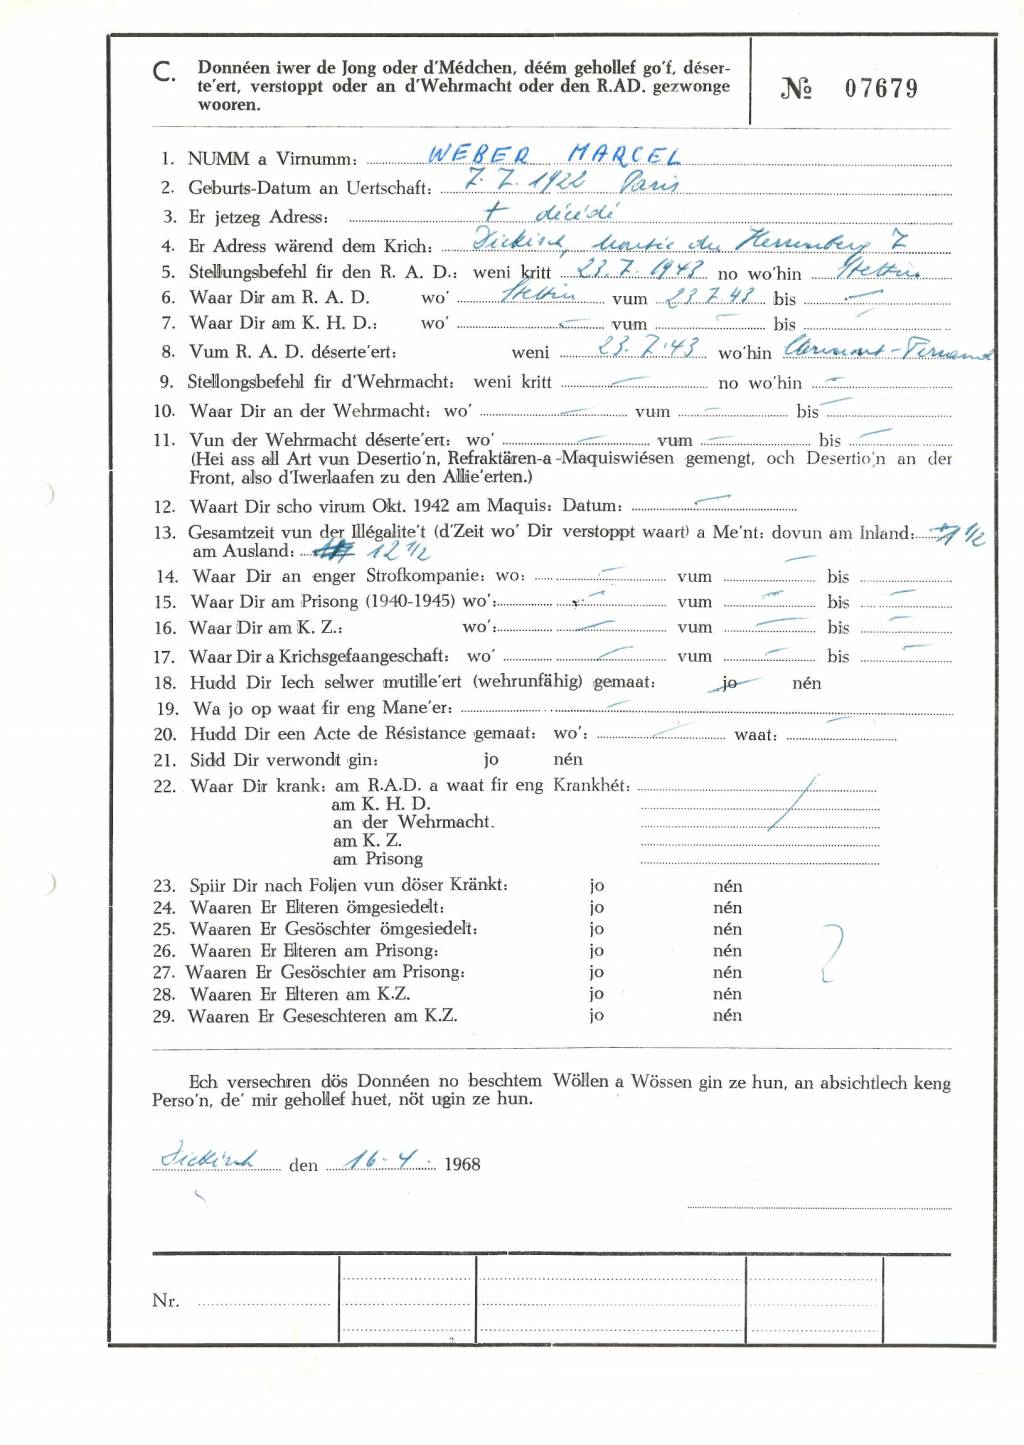 C. Donnéen iwer de Jong oder d'Médchen, déém gehollef go'f, déser-
te'ert, verstoppt oder an d'Wehrmacht oder den R.AD. gezwonge
wooren.
№ 07679
1. NUMM a Virnumm: WEBER MARCEL
2. Geburts-Datum an Uertschaft: 7. 7. 1922 Paris
3. Er jetzeg Adress: † décédé
4. Er Adress wärend dem Krich: Diekirch, Montée du Herrenberg 7
5. Stellungsbefehl fir den R. A. D.: weni kritt 23.7.1943 no wo'hin Stettin
6. Waar Dir am R. A. D. wo' Stettin vum 23 7. 43 bis —
7. Waar Dir am K. H. D.: wo' — vum — bis —
8. Vum R. A. D. déserte'ert: weni 23. 7. 43 wo'hin Clermont-Ferrand
9. Stellongsbefehl fir d'Wehrmacht: weni kritt — no wo'hin —
10. Waar Dir an der Wehrmacht: wo' — vum — bis —
11. Vun der Wehrmacht déserte'ert: wo' — vum — bis —
(Hei ass all Art vun Desertio'n, Refraktären-a-Maquiswiésen gemengt, och Desertio'n an der
Front, also d'Iwerlaafen zu den Allie'erten.)
12. Waart Dir scho virum Okt. 1942 am Maquis: Datum: —
13. Gesamtzeit vun der Illégalite't (d'Zeit wo' Dir verstoppt waart) a Me'nt: dovun am Inland: 1/2
am Ausland: 12 1/2
14. Waar Dir an enger Strofkompanie: wo: — vum — bis —
15. Waar Dir am Prisong (1940-1945) wo': — vum — bis —
16. Waar Dir am K. Z.: wo': — vum — bis —
17. Waar Dir a Krichsgefaangeschaft: wo' — vum — bis —
18. Hudd Dir Iech selwer mutille'ert (wehrunfähig) gemaat: jo nén
19. Wa jo op waat fir eng Mane'er: —
20. Hudd Dir een Acte de Résistance gemaat: wo': — waat: —
21. Sidd Dir verwondt gin: jo nén
22. Waar Dir krank: am R.A.D. a waat fir eng Krankhét:
am K. H. D.
an der Wehrmacht.
am K. Z.
am Prisong
23. Spiir Dir nach Foljen vun döser Kränkt: jo nén
24. Waaren Er Elteren ömgesiedelt: jo nén
25. Waaren Er Gesöschter ömgesiedelt: jo nén
26. Waaren Er Elteren am Prisong: jo nén
27. Waaren Er Gesöschter am Prisong: jo nén
28. Waaren Er Elteren am K.Z. jo nén
29. Waaren Er Geseschteren am K.Z. jo nén
?
Ech versechren dös Donnéen no beschtem Wöllen a Wössen gin ze hun, an absichtlech keng
Perso'n, de' mir gehollef huet, nöt ugin ze hun.
Diekirch den 16. 4. 1968
Nr.